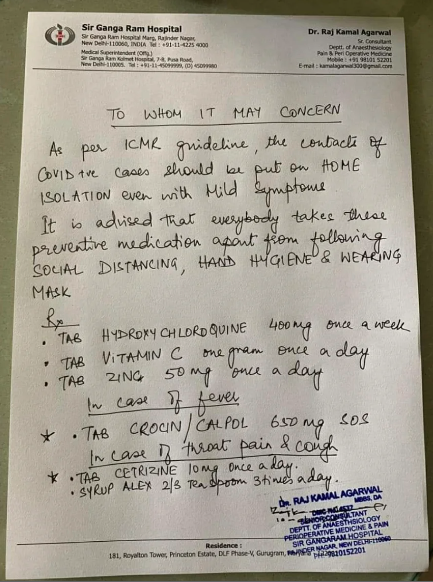 Sir Ganga Ram Hospital
Sir Ganga Ram Hospital Marg, Rajinder Nagar,
New Delhi-110060, INDIA Tel : +91-11-4225 4000
Medical Superintendent (Offg.)
Sir Ganga Ram Kolmet Hospital, 7-B, Pusa Road,
New Delhi-110005. Tel : +91-11-45099999, (D) 45099980
Dr. Raj Kamal Agarwal
Sr. Consultant
Deptt. of Anaesthesiology
Pain & Peri Operative Medicine
Mobile : +91 98101 52201
E-mail : kamalagarwal300@gmail.com
TO WHOM IT MAY CONCERN
As per ICMR guideline, the contacts of
COVID +ve cases should be put on HOME
ISOLATION even with Mild Symptoms
It is advised that everybody takes these
preventive medication apart from following
SOCIAL DISTANCING, HAND HYGIENE & WEARING
MASK
Rx
• TAB HYDROXYCHLOROQUINE 400mg once a week
• TAB VITAMIN C one gram once a day
• TAB ZINC 50 mg once a day
In case of fever
* • TAB CROCIN/CALPOL 650 mg SOS
In case of throat pain & cough
* • TAB CETRIZINE 10mg once a day.
• SYRUP ALEX 2/3 Tea spoom 3 times a day.
Dr. RAJ KAMAL AGARWAL
MBBS, DA
SENIOR CONSULTANT
DEPTT. OF ANAESTHSIOLOGY
PERIOPERATIVE MEDICINE & PAIN
SIR GANGARAM HOSPITAL
RAJINDER NAGAR, NEW DELHI-110060
9810152201
Residence :
181, Royalton Tower, Princeton Estate, DLF Phase-V, Gurugram,